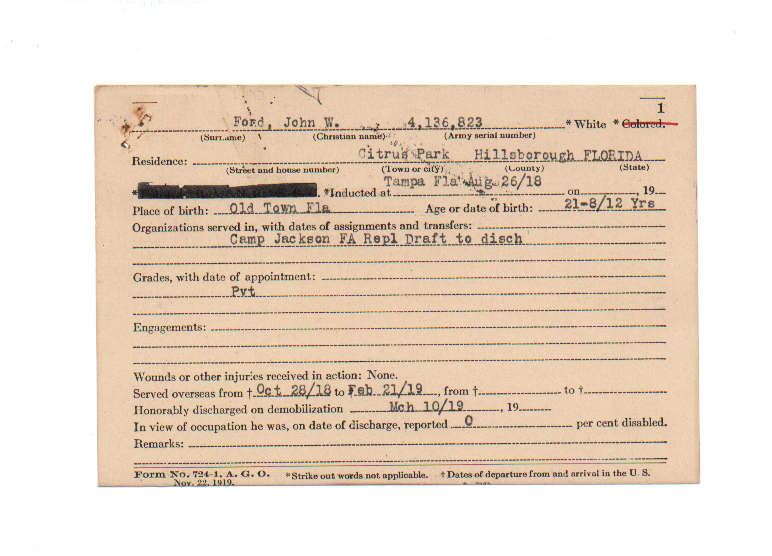 1
Ford, John W. 4,136,823 * White * Colored.
(Surname) (Christian name) (Army serial number)
Residence: Citrus Park Hillsborough FLORIDA
(Street and house number) (Town or city) (County) (State)
Tampa Fla Aug 26/18
* *Inducted at on , 19
Place of birth: Old Town Fla Age or date of birth: 21-8/12 Yrs
Organizations served in, with dates of assignments and transfers:
Camp Jackson FA Repl Draft to disch
Grades, with date of appointment:
Pvt
Engagements:
Wounds or other injuries received in action: None.
Served overseas from † Oct 28/18 to † Feb 21/19 , from † to †
Honorably discharged on demobilization Mch 10/19 , 19
In view of occupation he was, on date of discharge, reported 0 per cent disabled.
Remarks:
Form No. 724-1, A. G. O. *Strike out words not applicable. † Dates of departure from and arrival in the U. S.
Nov. 22, 1919.